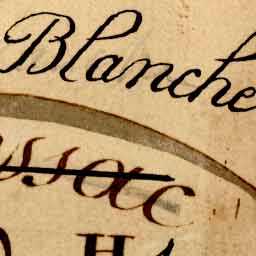 Blanche
ssac
H